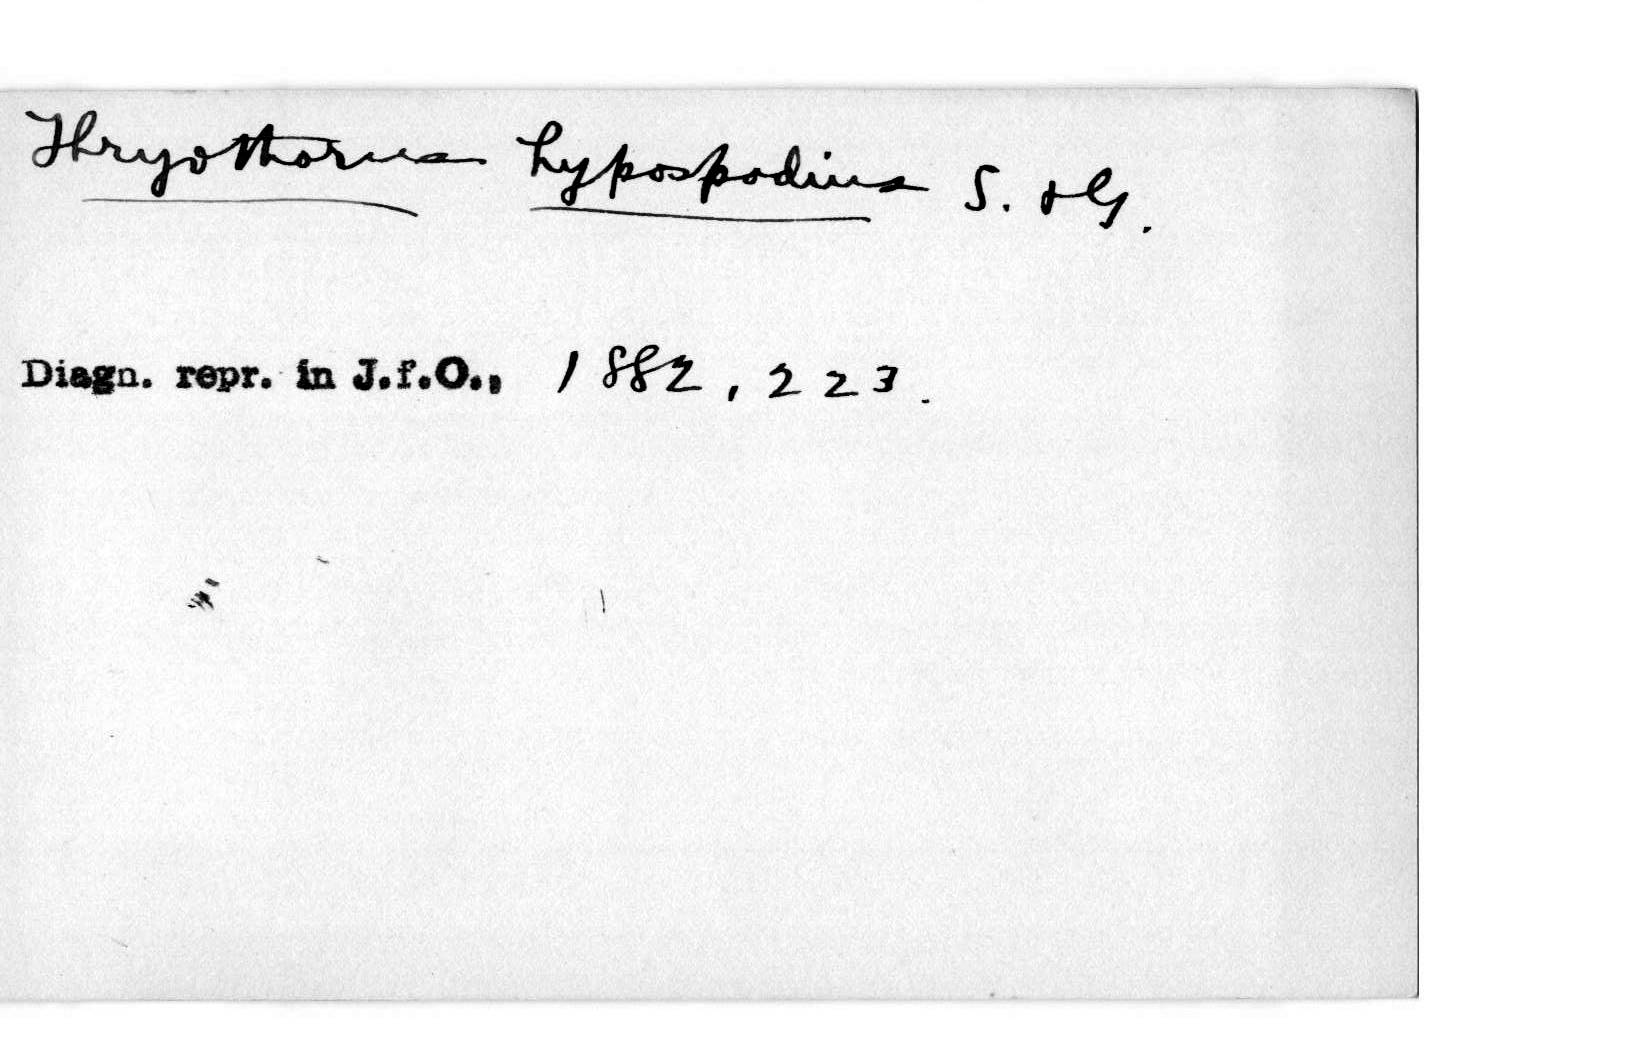 Thryothorus hypospodius S. & G.
Diagn. repr. in J.f.O., 1882, 223.